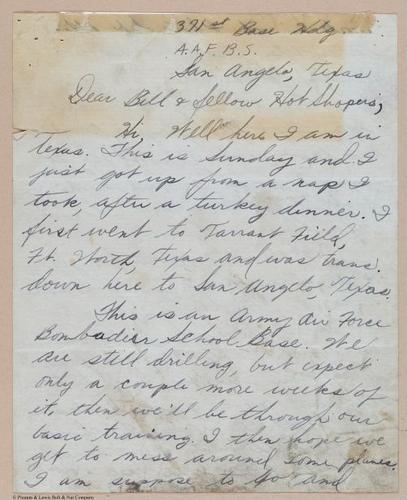 371st Base Hdq
A.A.F.B.S.
San Angelo, Texas
Dear Bill & Fellow Hot Shopers,
Hi, Well here I am in
Texas. This is Sunday and I
just got up from a nap I
took, after a turkey dinner. I
first went to Tarrant Field,
Ft. Worth, Texas and was trans.
down here to San Angelo, Texas.
This is an Army Air Force
Bombadier School Base. We
are still drilling, but expect
only a couple more weeks of
it, then we'll be through our
basic training. I then hope we
get to mess around some planes.
I am suppose to go and
© Pioneer & Lewis Bolt & Nut Company